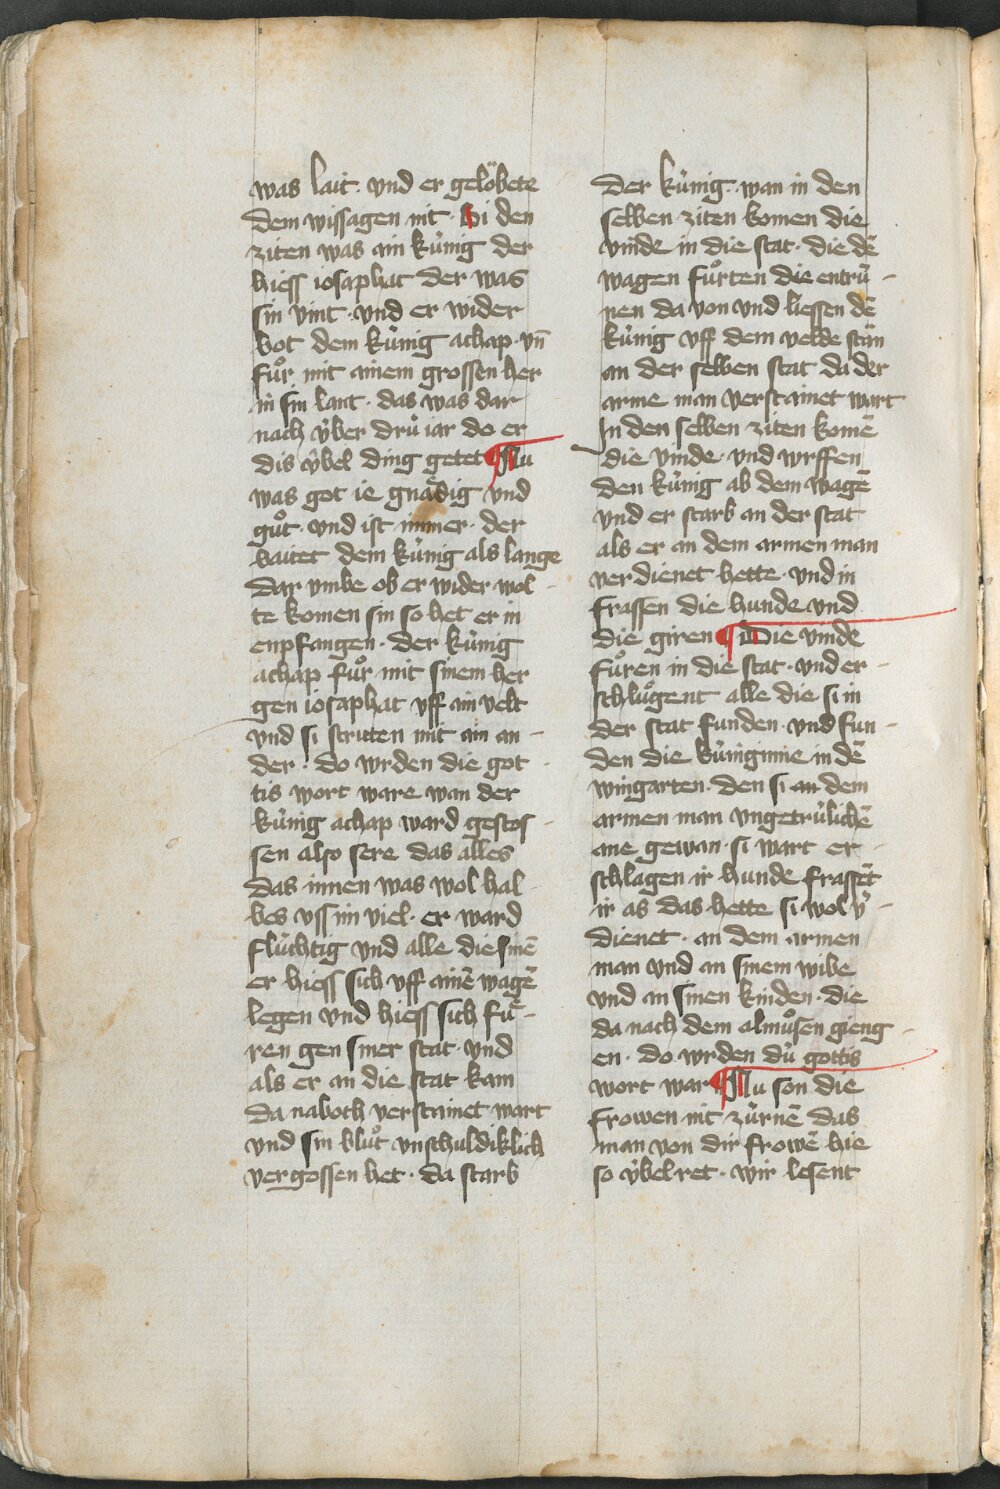 was lait · vnd er gelo̎bete
dem wissagen nit · bi den
ziten was ain ku̍nig der
hiess iosaphat der was
sin vint · vnd er wider
bot dem ku̍nig achap · vn̄
fuͦr mit ainem grossen her
in sin lant · das was dar
nach v̍ber dru̍ iar do er
dis v̍bel ding getet ¶ Nu
was got ie gnädig vnd
guͦt · vnd ist immer · der
baitet dem ku̍nig als lange
dar vmbe ob er wider wol -
te komen sin so het er in
enpfangen · der ku̍nig
achap fuͦr mit sinem her
gen iosaphat vff ain velt
vnd si striten mit ain an -
der · do wrden die got -
tis wort ware wan der
ku̍nig achap ward gestos -
sen also sere das alles
das innen was wol hal -
bes vss im viel · er ward
flu̍chtig vnd alle die sinē
er hiess sich vff ainē wagē
legen vnd hiess sich fuͤ -
ren gen siner stat · vnd
als er an die stat kam
da naboth verstainet wart
vnd sin bluͦt vnschuldiklich
vergossen het · da starb
der ku̍nig · wan in den
selben ziten komen die
vinde in die stat · die dē
wagen fuͦrten die entru̍ -
nen da von vnd liessen dē
ku̍nig vff dem velde stan
an der selben stat da der
arme man verstainet wart
In den selben ziten komē
die vinde · vnd wrffen
den ku̍nig ab dem wagē
vnd er starb an der stat
als er an dem armen man
verdienet hette · vnd in
frassen die hunde vnd
die giren ¶ Die vinde
fuͦren in die stat · vnd er -
schluͦgent alle die si in
der stat funden · vnd fun -
den die ku̍niginne in dē
wingarten · den si an dem
armen man vngetru̍lichē
ane gewan · si wart er -
schlagen ir hunde frassēt
ir as das hette si wol v̍ -
dienet · an dem armen
man vnd an sinem wibe
vnd an sinen kinden · die
da nach dem almuͦsen gieng -
en · do wrden du̍ gottis
wort war ¶ Nu son die
frowen nit zu̍rnē das
man von dir frowē hie
so v̍bel ret · wir lesent